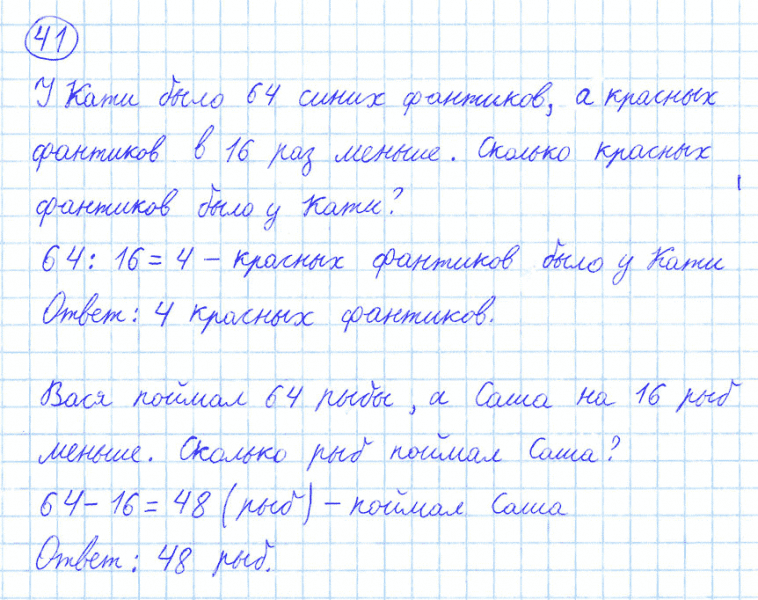 41
У Кати было 64 синих фантиков, а красных
фантиков в 16 раз меньше. Сколько красных
фантиков было у Кати?
64: 16 = 4 – красных фантиков было у Кати
Ответ: 4 красных фантиков.
Вася поймал 64 рыбы, а Саша на 16 рыб
меньше. Сколько рыб поймал Саша?
64 – 16 = 48 (рыб) – поймал Саша
Ответ: 48 рыб.